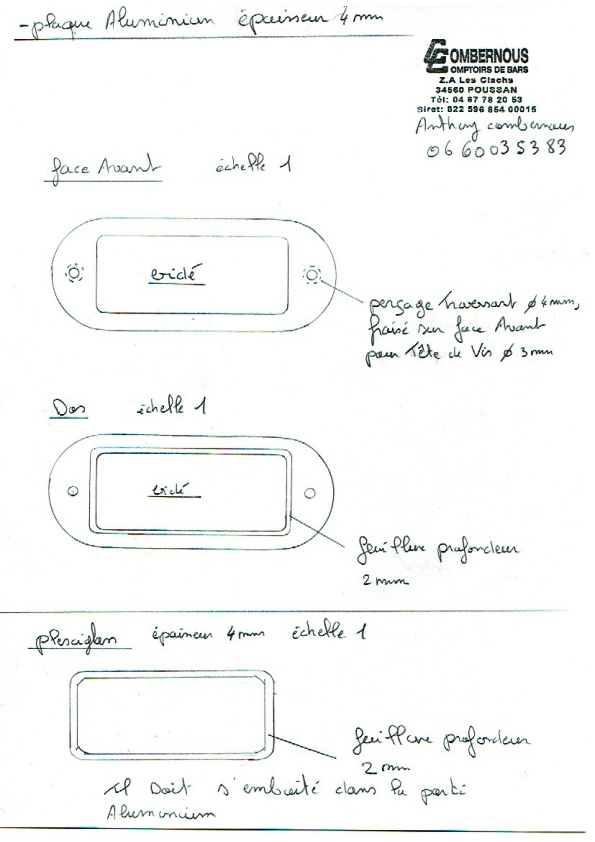 - plaque Aluminium épaisseur 4 mm
COMBERNOUS
COMPTOIRS DE BARS
Z.A Les Clachs
34560 POUSSAN
Tél: 04 67 78 20 53
Siret: 822 596 854 00015
Anthony combernous
06 60 03 53 83
face Avant échelle 1
evidé
perçage traversant ø 4 mm,
fraisé sur face Avant
pour Tête de Vis ø 3 mm
Dos échelle 1
evidé
feuillure profondeur
2 mm
plexciglan épaisseur 4 mm échelle 1
feuillure profondeur
2 mm
Il Doit s'emboité dans la parti
Alumunium